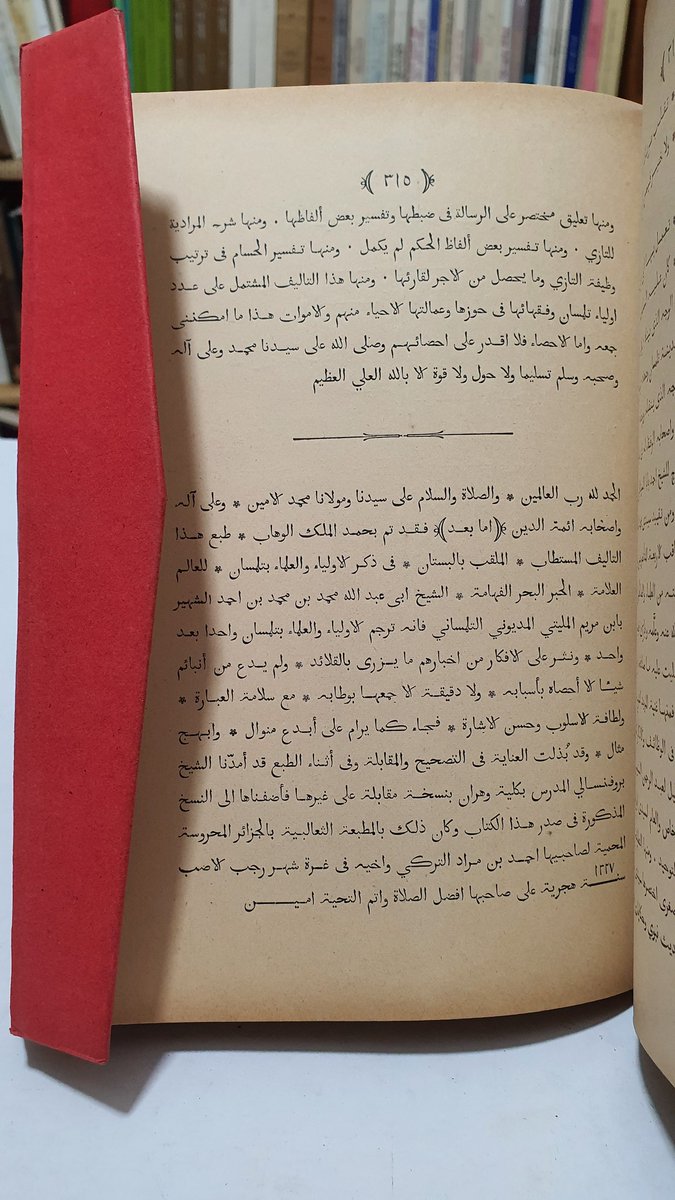 ﴿ ٣١٥ ﴾
ومنها تعليق مختصر على الرسالة فى ضبطها وتفسير بعض ألفاظها . ومنها شرح المرادية
للتازي . ومنها تفسير بعض ألفاظ الحكم لم يكمل . ومنها تفسير الحسام فى ترتيب
وظيفة التازي وما يحصل من كلاجر لقارئها . ومنها هذا التاليف المشتمل على عدد
اولياء تلمسان وفقهائها فى حوزها وعمالتها كلاحياء منهم وكلاموات هذا ما امكننى
جمعه واما كلاحصاء فلا اقدر على احصائهم وصلى الله على سيدنا محمد وعلى آله
وصحبه وسلم تسليما ولا حول ولا قوة كلا بالله العلي العظيم
الحمد لله رب العالمين * والصلاة والسلام على سيدنا ومولانا محمد كلامين * وعلى آله
واصحابه ائمة الدين * ﴿اما بعد﴾ فقد تم بحمد الملك الوهاب * طبع هذا
التاليف المستطاب * الملقب بالبستان * فى ذكر كلاولياء والعلماء بتلمسان * للعالم
العلامة * الحبر البحر الفهامة * الشيخ ابى عبد الله محمد بن محمد بن احمد الشهير
بابن مريم المليتي المديوني التلمساني فانه ترجم كلاولياء والعلماء بتلمسان واحدا بعد
واحد * ونشر على كلافكار من اخبارهم ما يزرى بالقلائد * ولم يدع من أنبائهم
شيئا كلا أحصاه بأسبابه * ولا دقيقة كلا جمعها بوطابه * مع سلامة العبارة *
ولطافة كلاسلوب وحسن كلاشارة * فجاء كما يرام على أبدع منوال * وابهج
مثال * وقد بُذلت العناية فى التصحيح والمقابلة وفى أثناء الطبع قد أمدّنا الشيخ
بروفنسالي المدرس بكلية وهران بنسخة مقابلة على غيرها فأضفناها الى النسخ
المذكورة فى صدر هذا الكتاب وكان ذلك بالمطبعة الثعالبية بالجزائر المحروسة
المحمية لصاحبيها احمد بن مراد التركي واخيه فى غرة شهر رجب كلاصب
سنة ١٣٢٧ هجرية على صاحبها افضل الصلاة واتم التحية امين